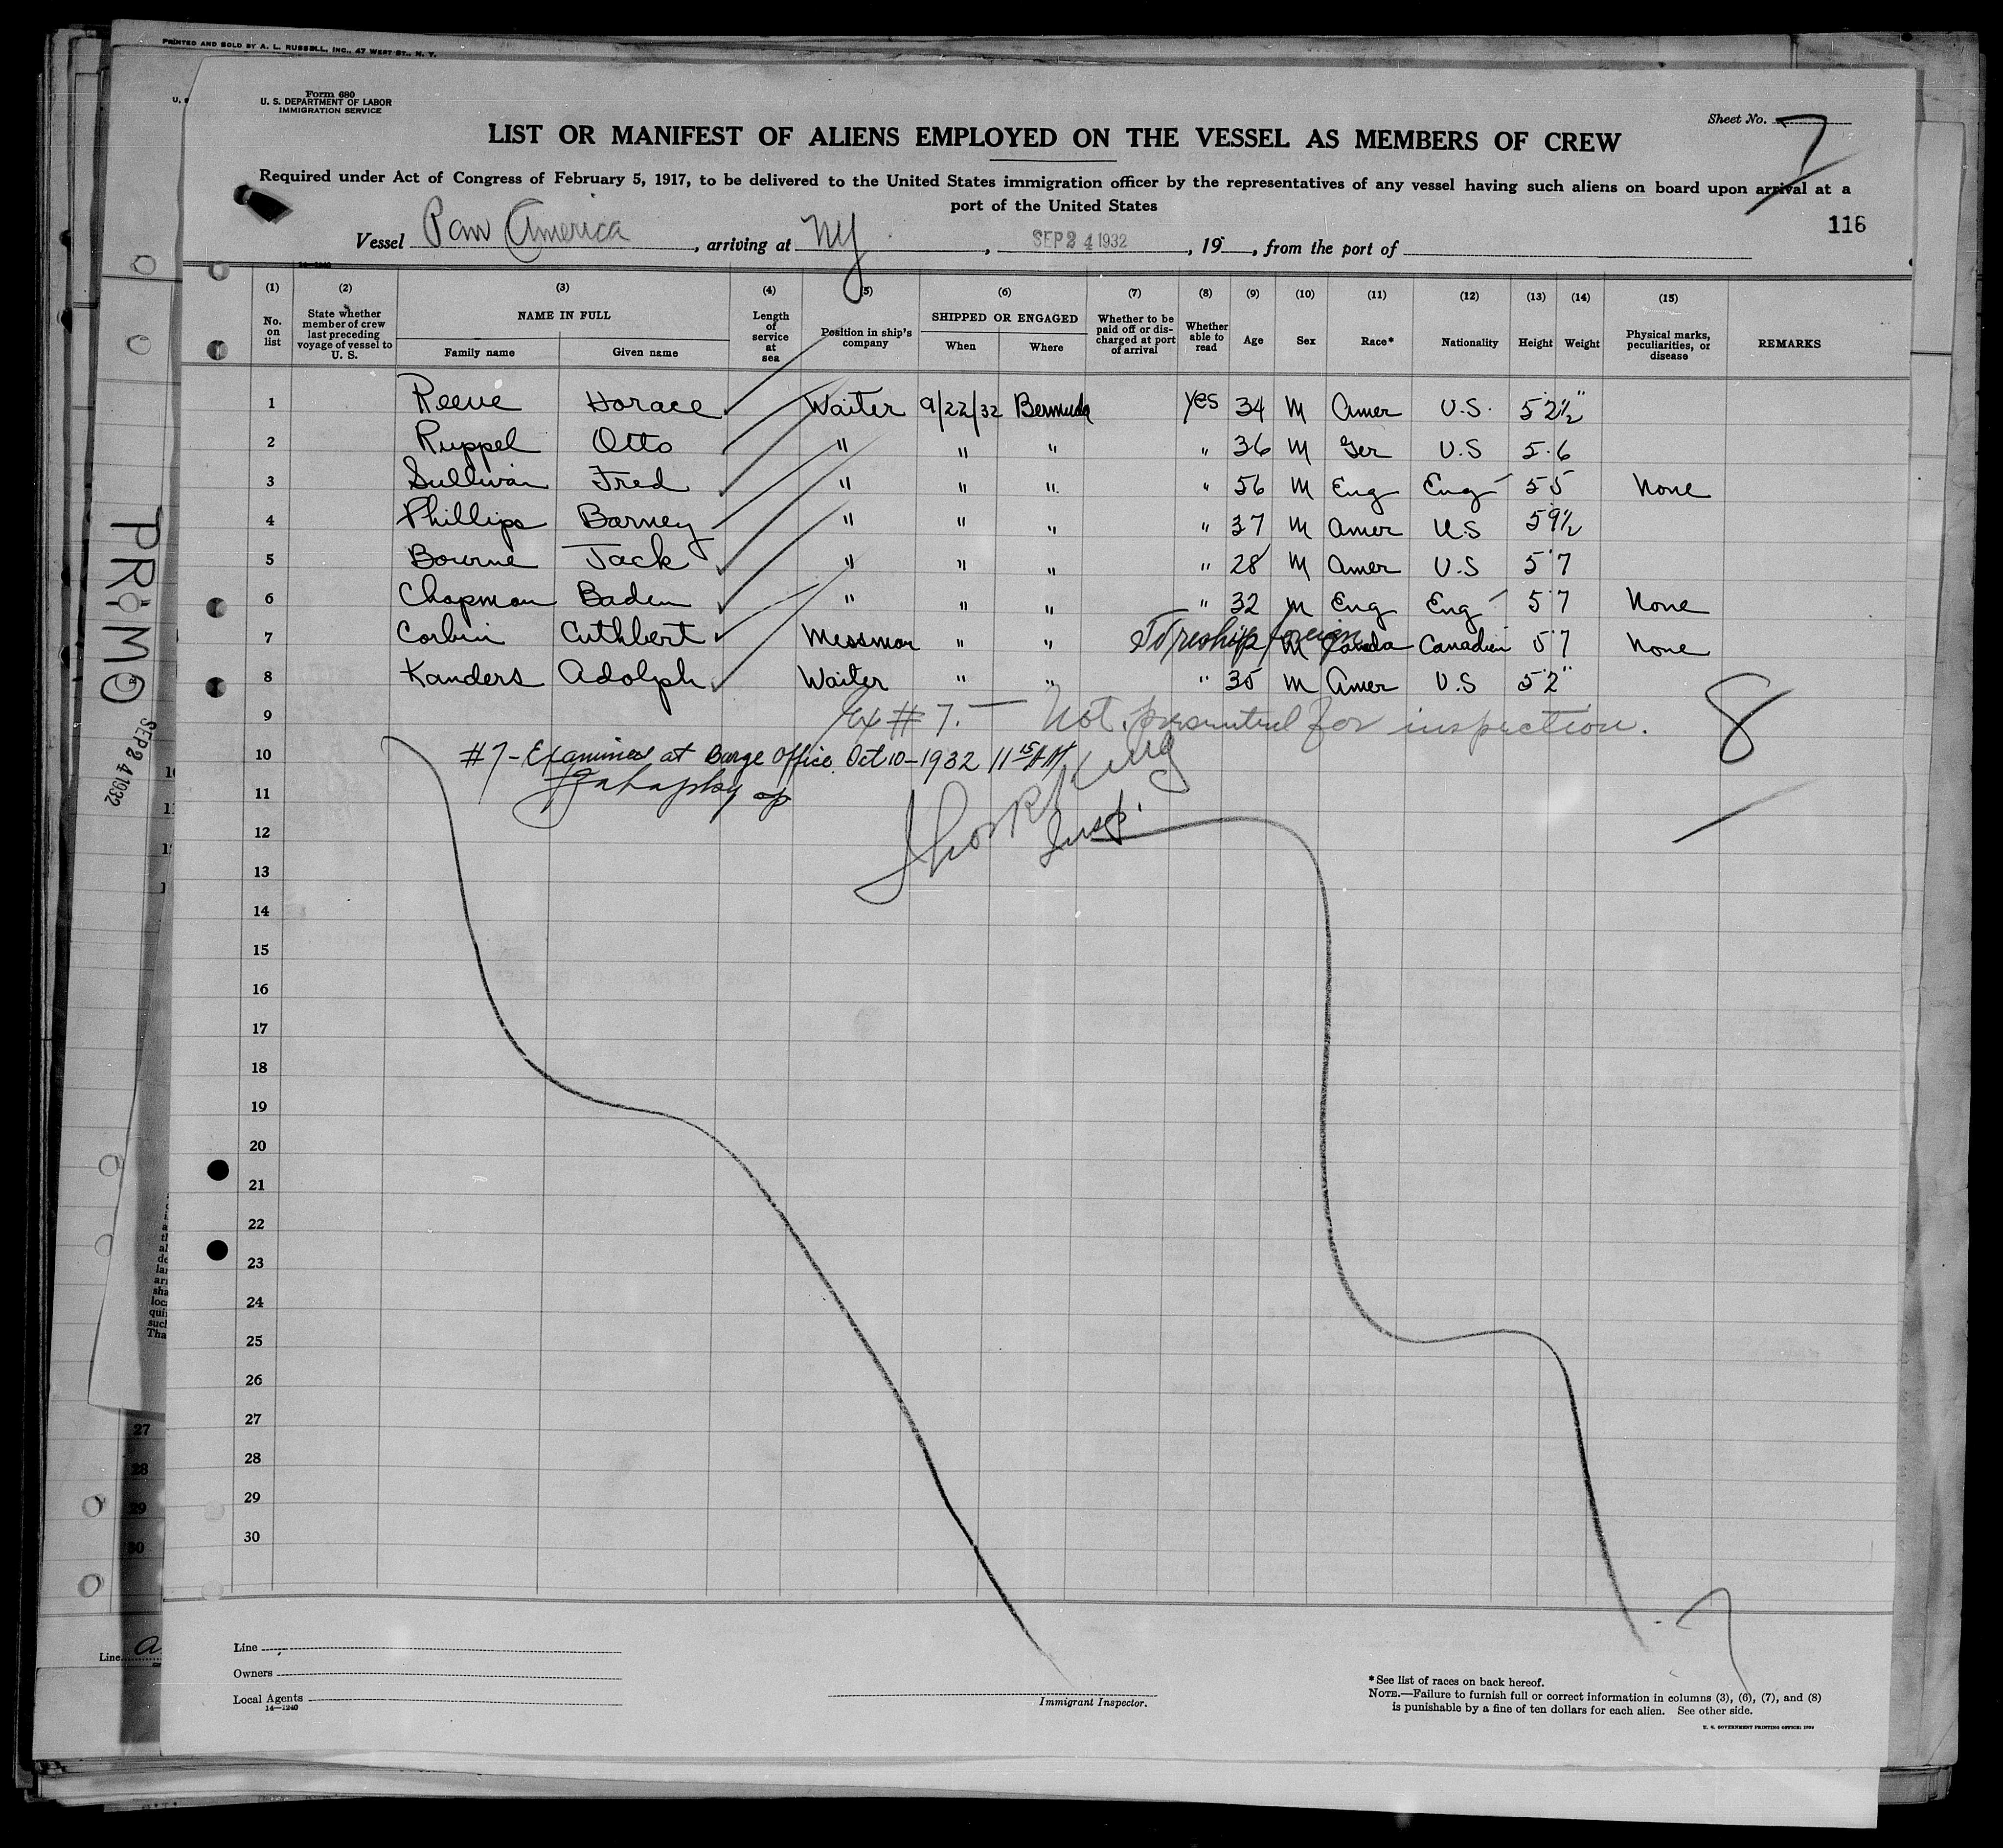 PRINTED AND SOLD BY A. L. RUSSELL, INC., 47 WEST ST., N. Y.
Form 680
U. S. DEPARTMENT OF LABOR
IMMIGRATION SERVICE
Sheet No. 7
LIST OR MANIFEST OF ALIENS EMPLOYED ON THE VESSEL AS MEMBERS OF CREW
Required under Act of Congress of February 5, 1917, to be delivered to the United States immigration officer by the representatives of any vessel having such aliens on board upon arrival at a
port of the United States
116
Vessel Pan America, arriving at NY, SEP 24 1932, 19 , from the port of
14—1240
(1) (2) (3) (4) (5) (6) (7) (8) (9) (10) (11) (12) (13) (14) (15)
No. on list
State whether member of crew last preceding voyage of vessel to U. S.
NAME IN FULL
Family name Given name
Length of service at sea
Position in ship's company
SHIPPED OR ENGAGED
When Where
Whether to be paid off or discharged at port of arrival
Whether able to read
Age Sex Race* Nationality Height Weight
Physical marks, peculiarities, or disease
REMARKS
1 Reeve Horace Waiter 9/22/32 Bermuda yes 34 M Amer U.S. 5'2½"
2 Ruppel Otto " " " " 36 M Ger U.S 5.6
3 Sullivan Fred " " " " 56 M Eng Eng 5 5 None
4 Phillips Barney " " " " 37 M Amer U.S 5 9½
5 Bourne Jack " " " " 28 M Amer U.S 5'7
6 Chapman Baden " " " " 32 M Eng Eng 5'7 None
7 Corbin Cuthbert Messman " " To reship foreign M Canada Canadien 5 7 None
8 Kanders Adolph Waiter " " " 35 M Amer U.S 5'2"
9 Ex # 7. — Not presented for inspection. 8
10 #7 - Examined at Barge Office Oct 10 - 1932 11 15 AM
11
12 Insp.
13
14
15
16
17
18
19
20
21
22
23
24
25
26
27
28
29
30
7
PRIMO
SEP 24 1932
27
28
29
30
Line
Line
Owners
Local Agents
14—1240
Immigrant Inspector.
*See list of races on back hereof.
NOTE.—Failure to furnish full or correct information in columns (3), (6), (7), and (8)
is punishable by a fine of ten dollars for each alien. See other side.